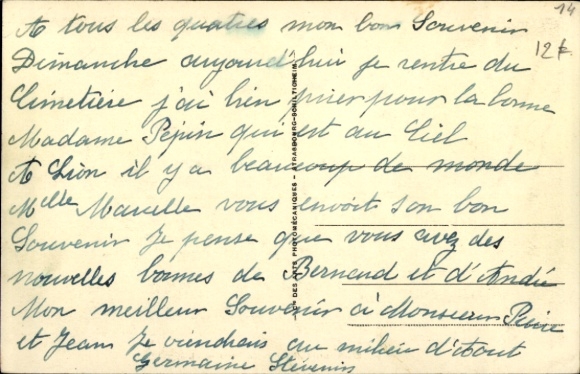 14
A tous les quatres mon bon Souvenir
12F
Dimanche aujourd'hui je rentre du
Cimetière j'ai bien prier pour la bonne
Madame Pepin qui est au Ciel
A Lion il y a beaucoup de monde
Melle Marcelle vous envoit son bon
Souvenir Je pense que vous avez des
nouvelles bonnes de Bernard et d'André
Mon meilleur Souvenir à Monsieur
et Jean Je viendrais au milieu d'Aout
Germaine Stévenin
DES ARTS PHOTOMÉCANIQUES - STRASBOURG-SCHILTIGHEIM